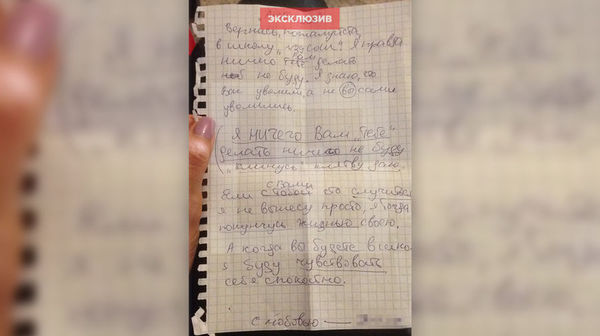 ЭКСКЛЮЗИВ
Вернись, пожалуйста,
в школу, я правда
ничего вам делать
не буду. Я знаю, что
Вас уволили, а не вы сами
уволились.
(Я НИЧЕГО Вам "Тебе"
делать ничего не буду
клятву даю.
с вами
Если с тобой что случится
я не вынесу просто, я тогда
покончу с жизнью своею.
А когда вы будете в школе
я буду чувствовать
себя спокойно.
С любовью —